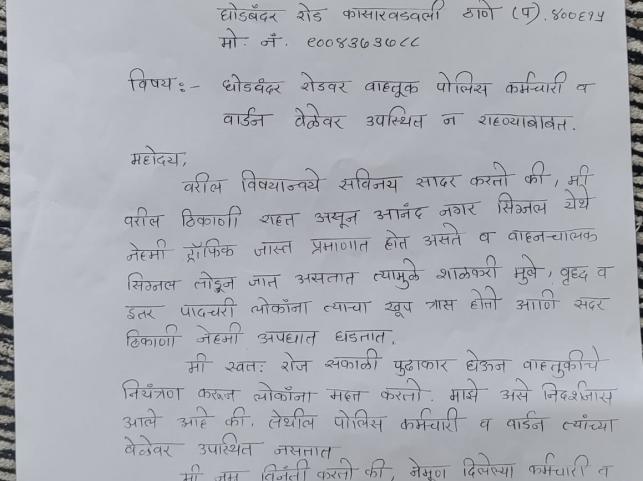 घोडबंदर रोड कासारवडवली ठाणे (प). ४००६१५
मो. नं. ९००४३६३७८८
विषय :- घोडबंदर रोडवर वाहतूक पोलिस कर्मचारी व
वार्डन वेळेवर उपस्थित न राहण्याबाबत.
महोदय,
वरील विषयान्वये सविनय सादर करतो की, मी
वरील ठिकाणी राहत असून आनंद नगर सिग्नल येथे
नेहमी ट्रॉफिक जास्त प्रमाणात होत असते व वाहनचालक
सिग्नल तोडून जात असतात त्यामुळे शाळकरी मुले, वृद्ध व
इतर पादचारी लोकांना त्याचा खूप त्रास होतो आणि सदर
ठिकाणी नेहमी अपघात घडतात.
मी स्वतः रोज सकाळी पुढाकार घेऊन वाहतुकीचे
नियंत्रण करून लोकांना मदत करतो. माझे असे निदर्शनास
आले आहे की, तेथील पोलिस कर्मचारी व वार्डन त्यांच्या
वेळेवर उपस्थित नसतात
मी नम्र विनंती करतो की, नेमून दिलेल्या कर्मचारी व